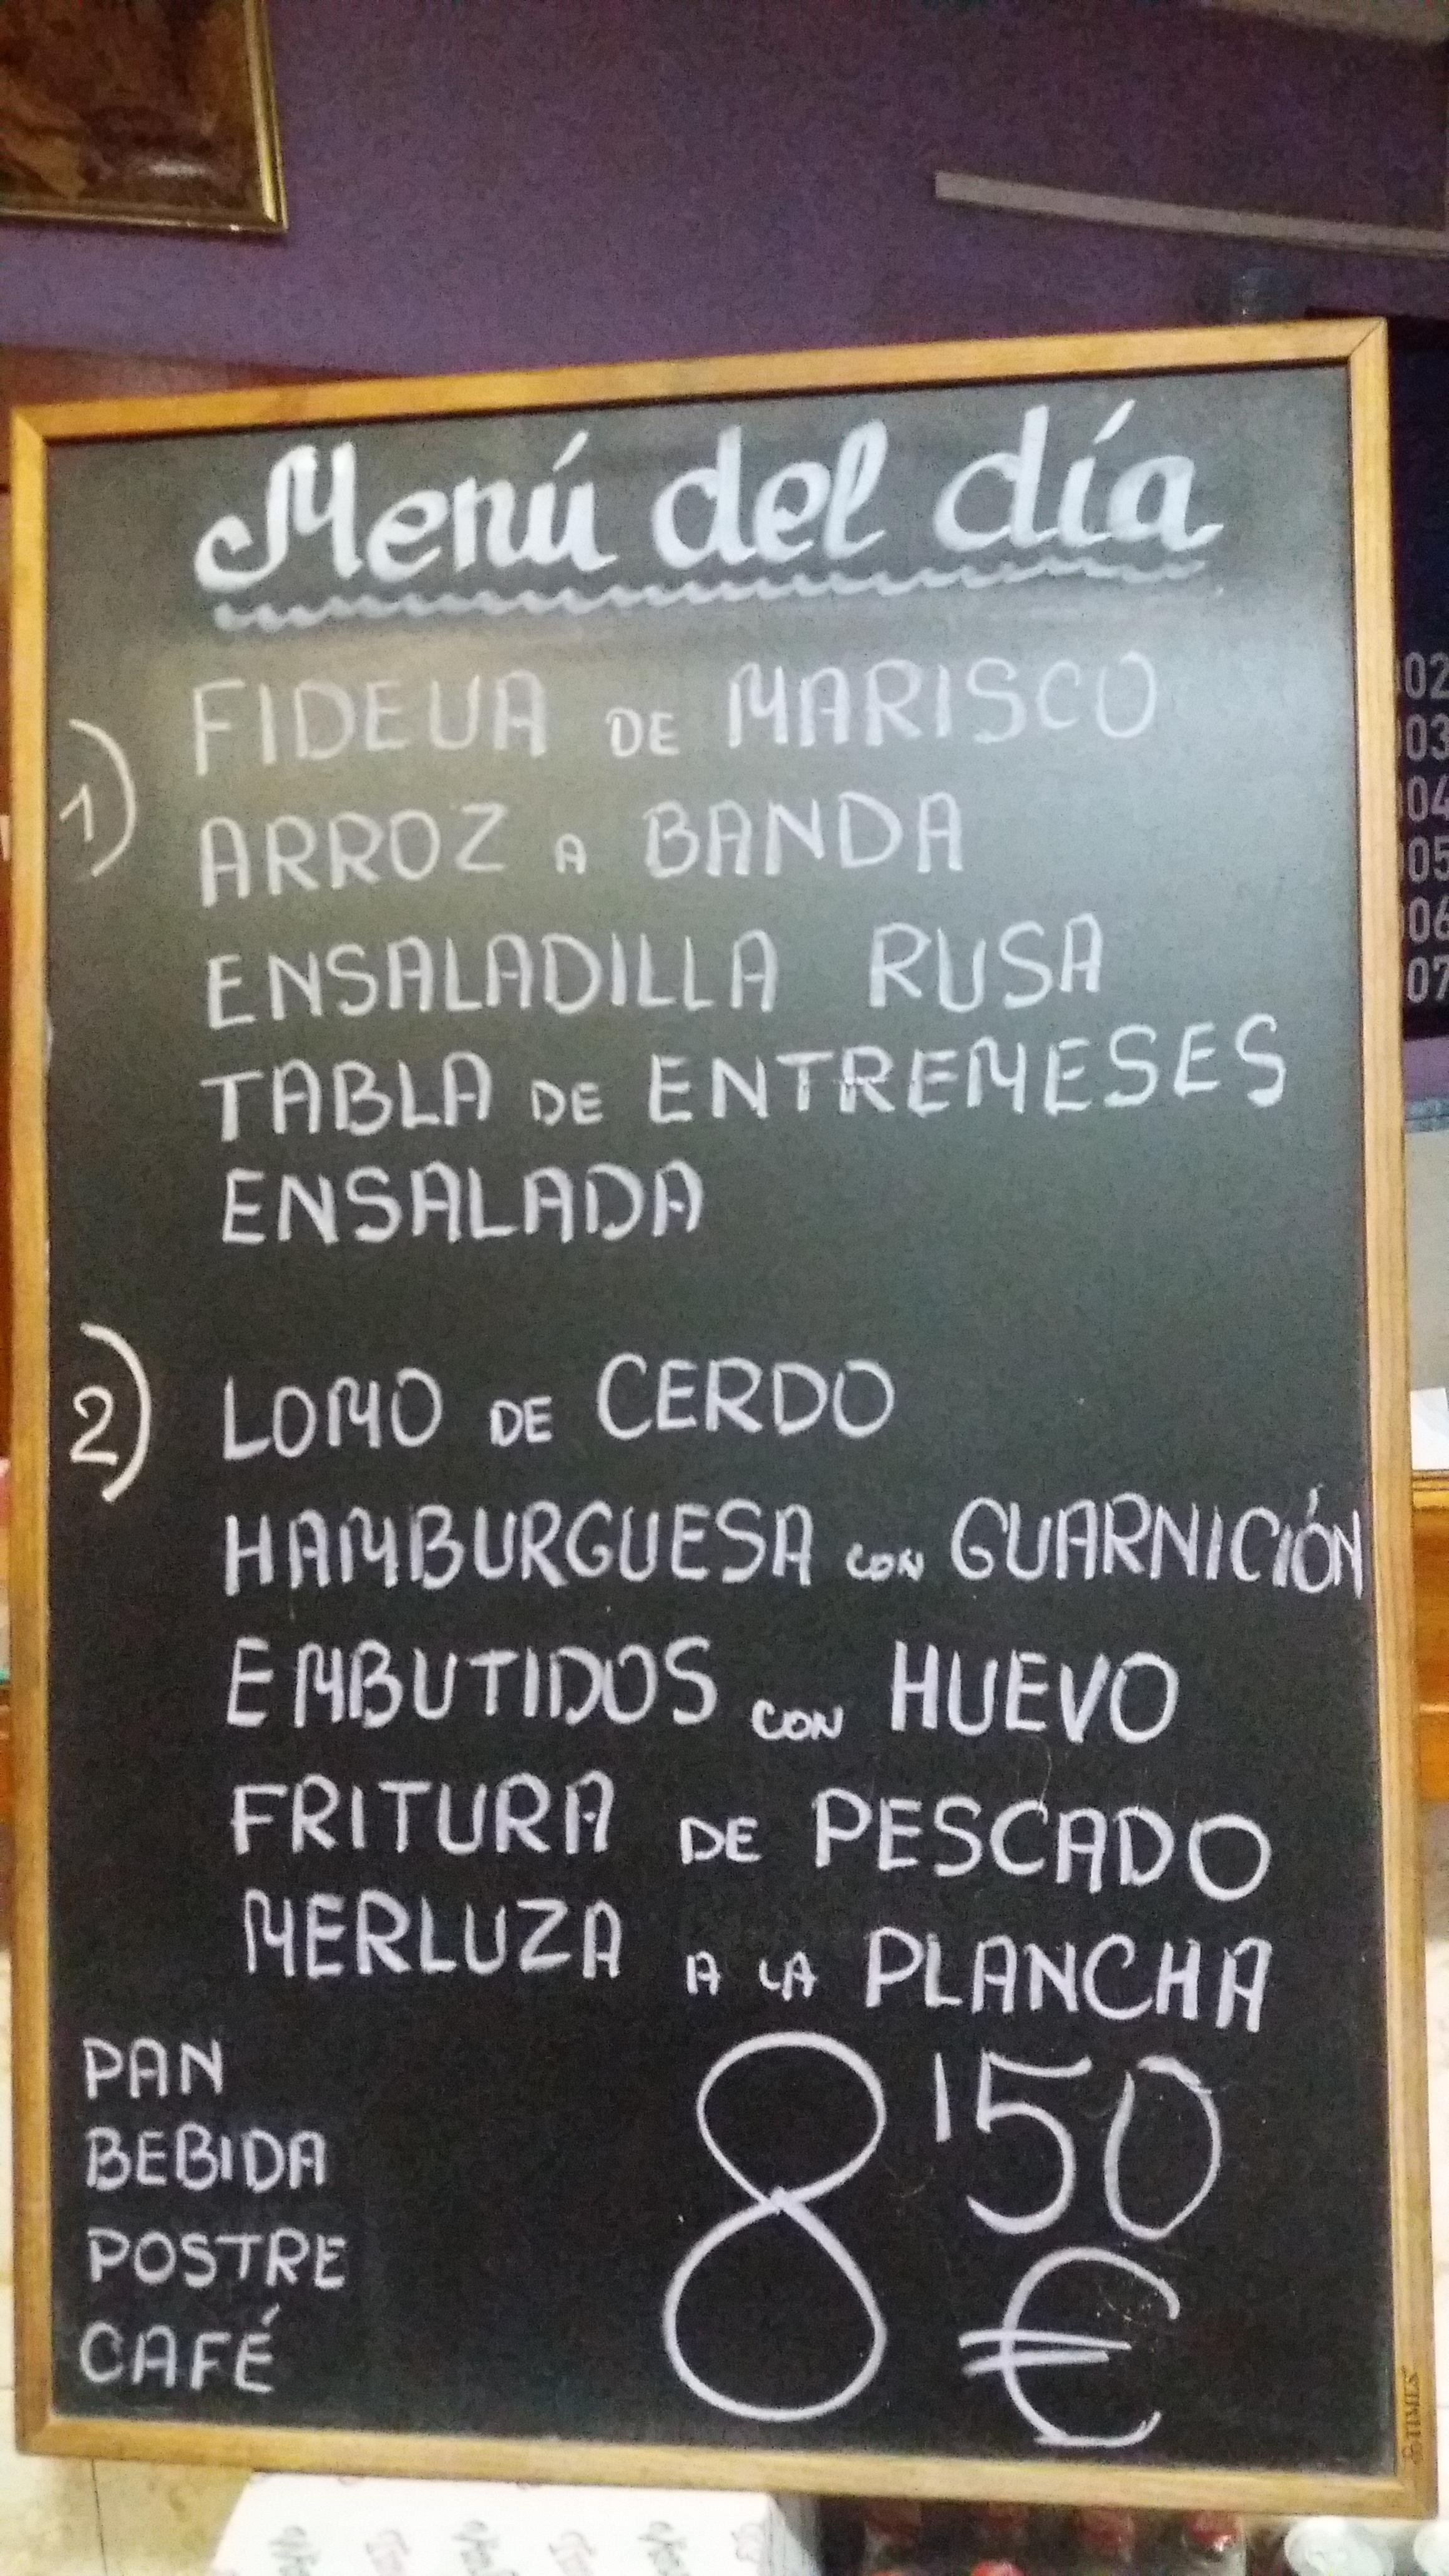 Menú del día
1)
FIDEUA DE MARISCO
ARROZ A BANDA
ENSALADILLA RUSA
TABLA DE ENTREMESES
ENSALADA
2)
LOMO DE CERDO
HAMBURGUESA CON GUARNICIÓN
EMBUTIDOS CON HUEVO
FRITURA DE PESCADO
MERLUZA A LA PLANCHA
PAN
BEBIDA
POSTRE
CAFÉ
8'50
€
02
03
04
05
06
07
TIMES